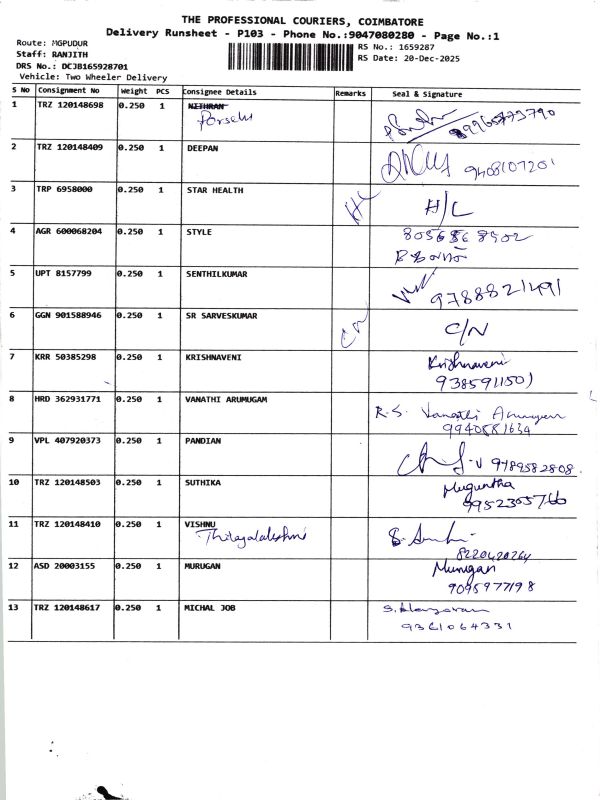 THE PROFESSIONAL COURIERS, COIMBATORE
Delivery Runsheet - P103 - Phone No.:9047080280 - Page No.:1
Route: MGPUDUR
RS No.: 1659287
Staff: RANJITH
RS Date: 20-Dec-2025
DRS No.: DCJB165928701
Vehicle: Two Wheeler Delivery
S No Consignment No Weight PCS Consignee Details Remarks Seal & Signature
1 TRZ 120148698 0.250 1 NITHRAN
2 TRZ 120148409 0.250 1 DEEPAN 9408107201
3 TRP 6958000 0.250 1 STAR HEALTH H/L
4 AGR 600068204 0.250 1 STYLE
5 UPT 8157799 0.250 1 SENTHILKUMAR 9788821491
6 GGN 901588946 0.250 1 SR SARVESKUMAR C/N
7 KRR 50385298 0.250 1 KRISHNAVENI Krishnaveni
9385911501
8 HRD 362931771 0.250 1 VANATHI ARUMUGAM R.S. Vanathi Arumugam
9940581634
9 VPL 407920373 0.250 1 PANDIAN 9789582808
10 TRZ 120148503 0.250 1 SUTHIKA Muguntha
9952305766
11 TRZ 120148410 0.250 1 VISHNU
Thilagalakshmi
8220420264
12 ASD 20003155 0.250 1 MURUGAN Murugan
9095977198
13 TRZ 120148617 0.250 1 MICHAL JOB
9361064331